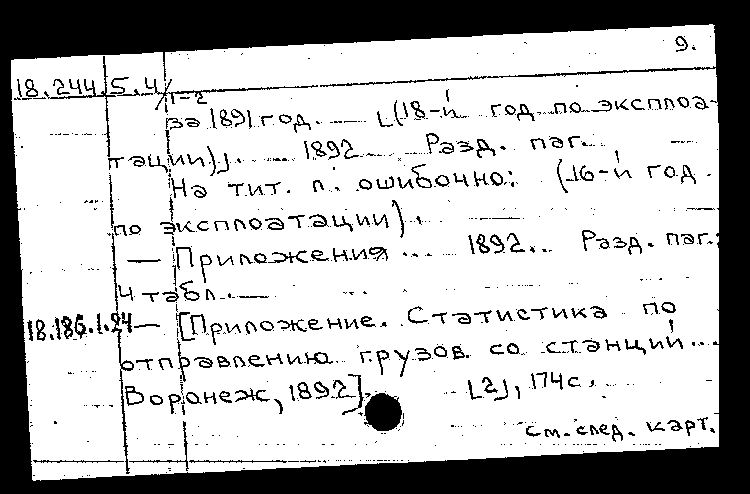 9.
18.244.5.4/1-2
за 1891 год. — [(18-й год по эксплоа-
тации)]. — 1892 Разд. паг. —
На тит. л. ошибочно: (16-й год
по эксплоатации).
— Приложения... 1892.. Разд. паг.;
4 табл. —
18.186.1.24 — [Приложение. Статистика по
отправлению грузов со станций...
Воронеж, 1892] [2], 174 с.
см. след. карт.